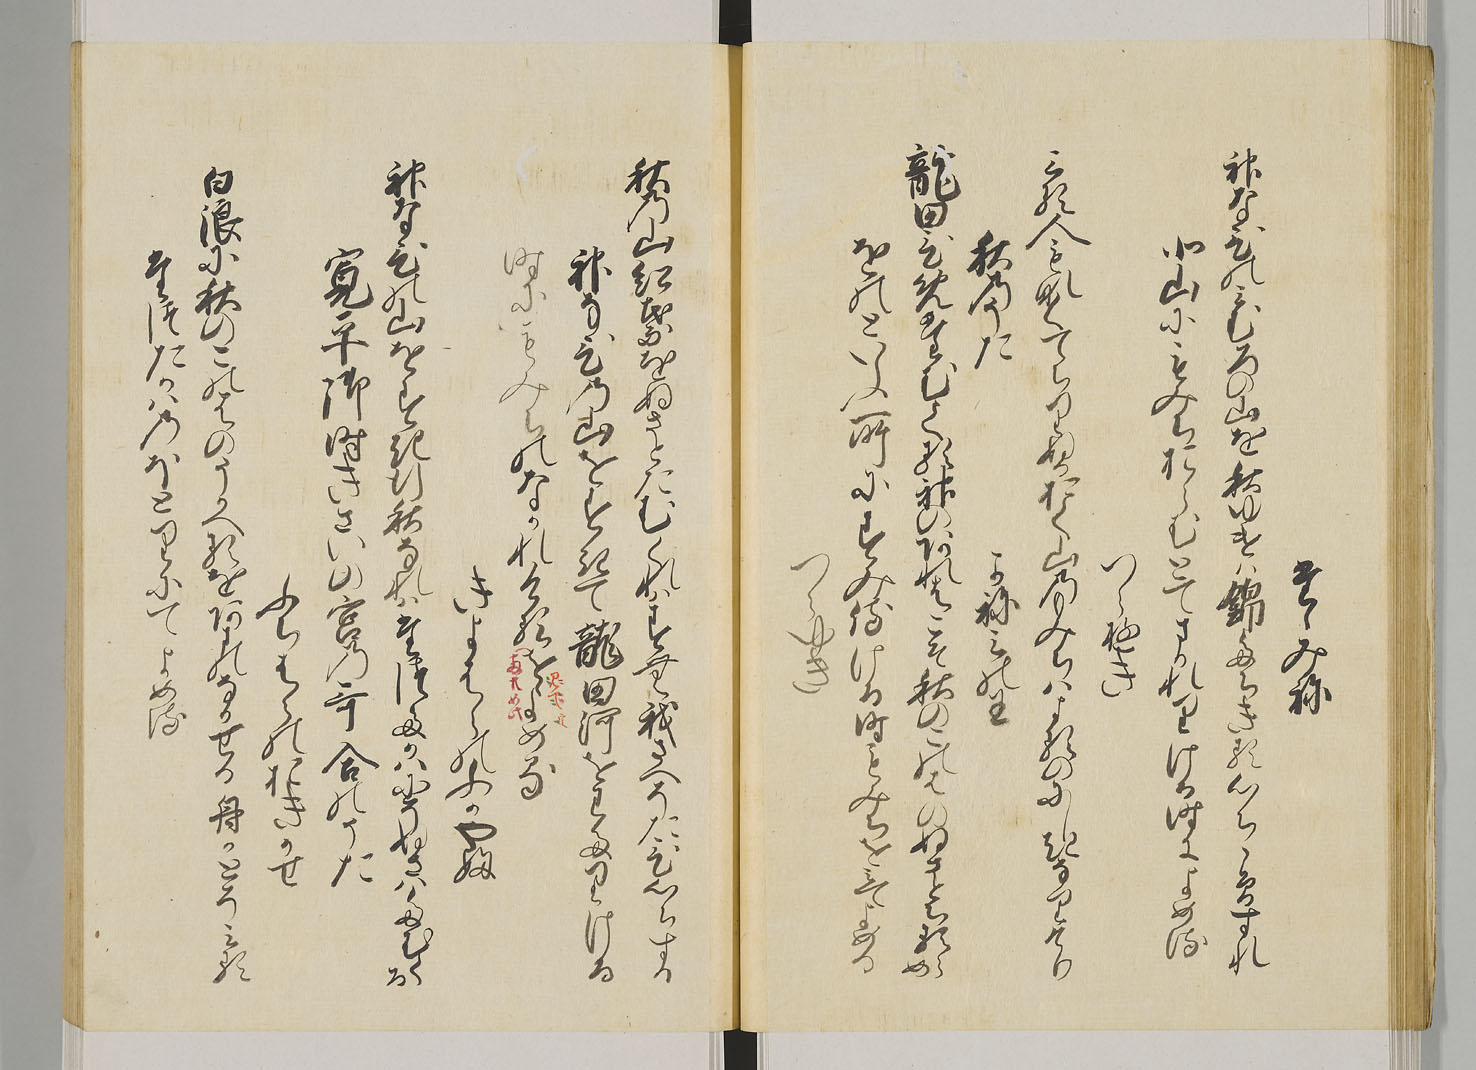 たゝみね
神なひのみむろの山を秋ゆけは錦たちきる心ちこそすれ
北山にもみちおらむとてまかれりける時によめる
つらゆき
みる人もなくてちりぬるおく山のもみちはよるのにしきなりけり
秋のうた
かねみの王
龍田ひめたむくる神のあれはこそ秋のこのはのぬさとちるらめ
をのといふ所にすみ侍ける時もみちをみてよめる
つらゆき
秋の山紅葉をぬさとたむくれはすむ我さへそたひ心ちする
神なひの山をすきて龍田河をわたりける
時にもみちのなかれけるをよめる
きよはらのふかやふ
神なひの山をすき行秋なれはたつたかはにそぬさはたむくる
寛平御時きさいの宮の哥合のうた
ふちはらのおきかせ
白浪に秋のこのはのうかへるをあまのなかせる舟かとそみる
たつたかはのほとりにてよめる